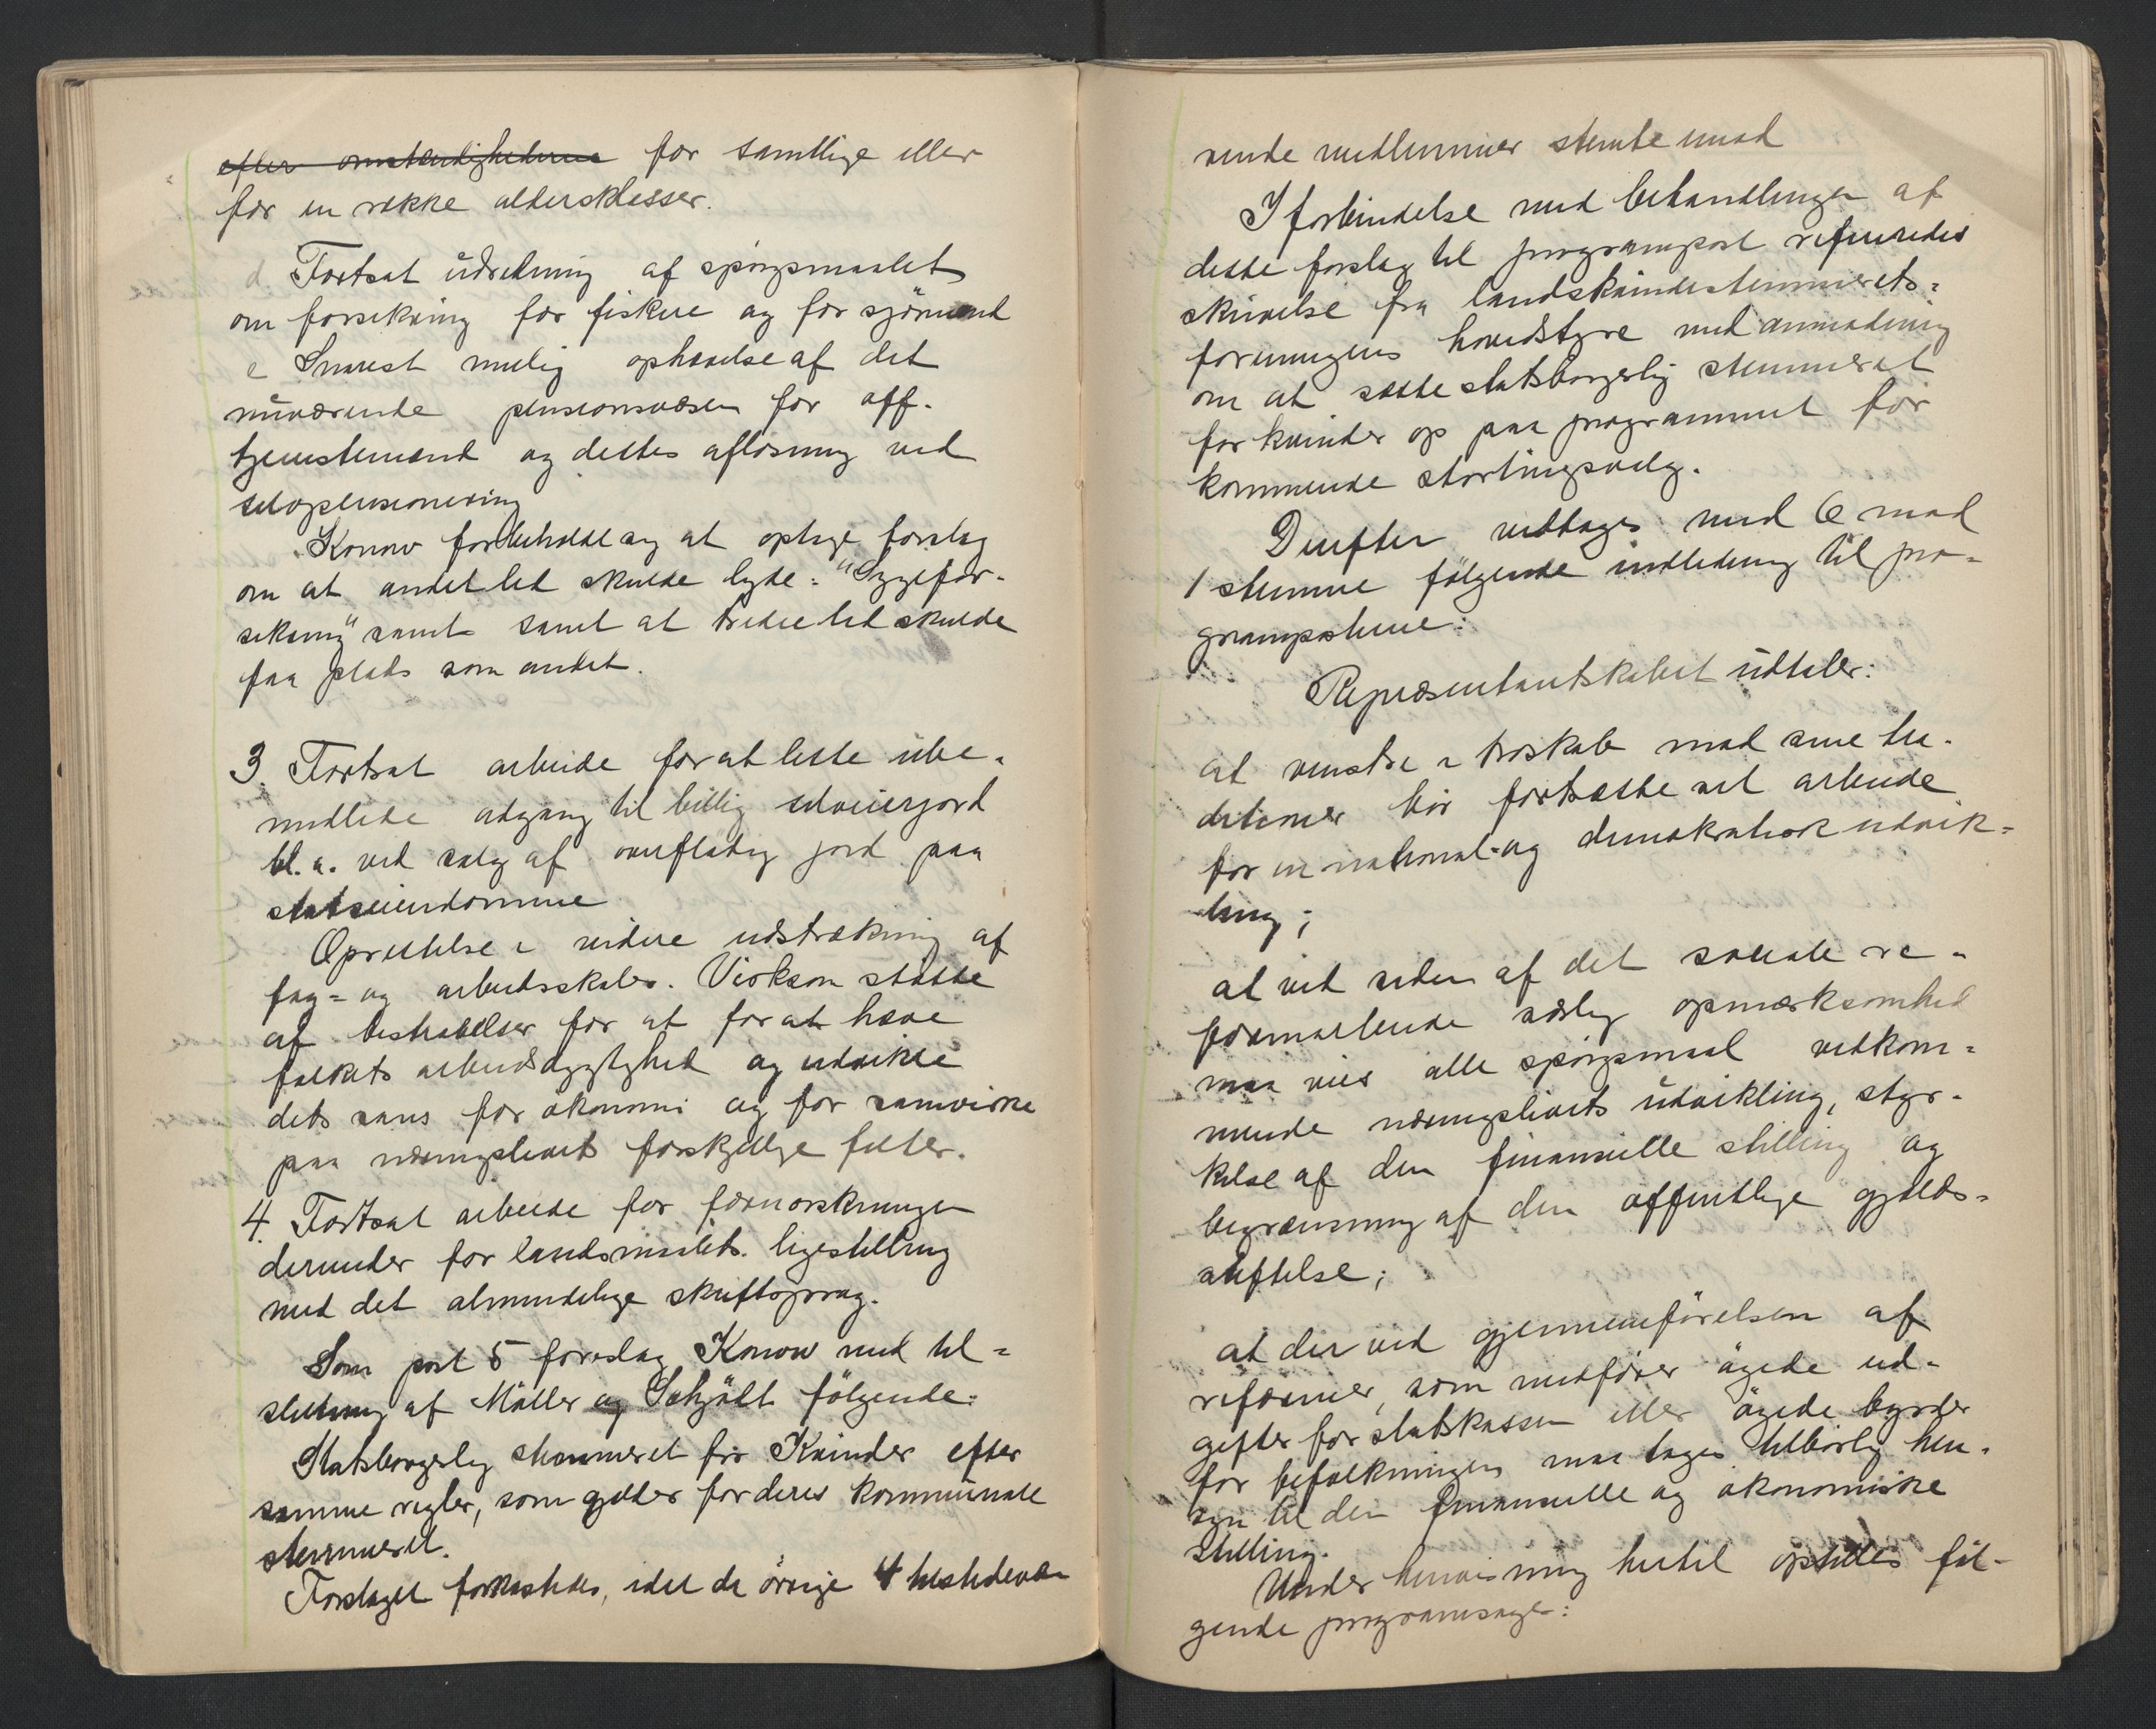 efter omstændighederne for samtlige eller
for en række aldersklasser.
d Fortsat üdredning af spørgsmaalet
om forsikring for fiskere og for sjömænd
e Snarest mulig ophævelse af det
nüværende pensionsvæsen for off.
tjenestemænd og dettes aflösning ved
selvpensionering
Konow forbeholdt sig at optage forslag
om at andet led skulde lyde: "Sygefor-
sikring" samt samt at tredie led skulde
faa plads som andet.
3. Fortsat arbeide for at lette übe-
midlede adgang til billig selveierjord
bl. a. ved salg af overflödig jord paa
statseiendomme
Oprettelse i videre udstrækning af
fag- og arbeidsskoler. Virksom stötte
af bestræbelser for at for at hæve
folkets arbeidsdygtighed og udvikle
dets sans for ökonomi og for samvirke
paa næringslivets forskjellige felter.
4. Fortsat arbeide for fornorskningen
derunder for landsmaalets ligestilling
med det almindelige skriftsprog.
Som post 5 foreslog Konow med til-
slutning af Möller og Schjöth fölgende:
Statsborgerlig stemmeret for Kvinder efter
samme regler, som gjælder for deres kommünale
stemmeret.
Forslaget forkastedes, idet de övrige 4 tilstedevæ-
rende medlemmer stemte mod
I forbindelse med behandlingen af
dette forslag til programpost refereredes
skrivelse fra landskvindestemmerets-
foreningens hovedstyre med anmodning
om at sætte statsborgerlig stemmeret
for kvinder op paa programmet for
kommende stortingsvalg.
Derefter vedtoges med 6 mod
1 stemme fölgende indledning til pro-
gramposterne:
Repræsentantskabet üdtaler:
at venstre i troskab mod sine tra-
ditioner bör fortsætte sit arbeide
for en national og demokratisk udvik-
ling;
at ved siden af det sociale re-
formarbeide særlig opmærksomhed
maa vies alle spörgsmaal vedkom-
mende næringslivets üdvikling, styr-
kelse af den finansielle stilling og
begrænsning af den offentlige gjælds-
stiftelse;
at der ved gjennemförelsen af
reformer, som medförer ögede ud-
gifter for statskassen eller ögede byrder
for befolkningen maa tages tilbörlig hen-
syn til den finansielle og ökonomiske
Stilling.
Under henvisning hertil opstilles föl-
gende programsager: